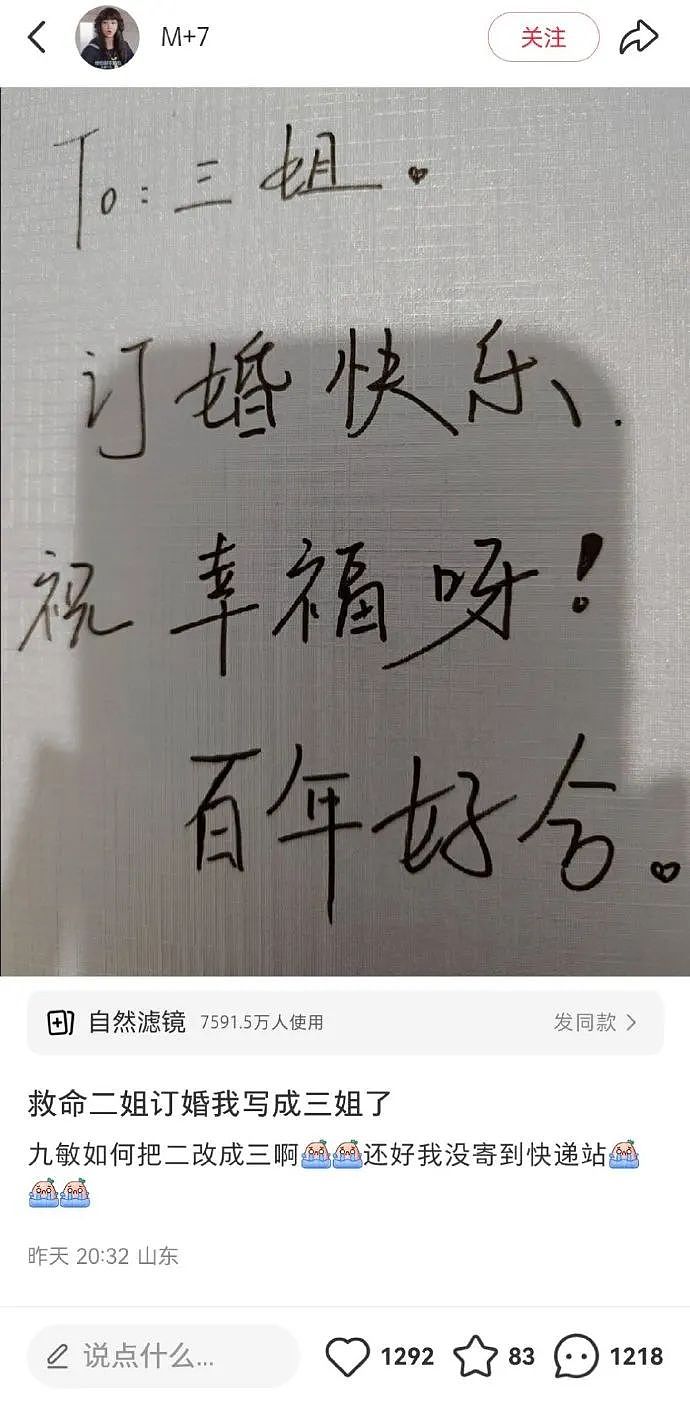 M+7
关注
To:三姐.
订婚快乐、.
祝幸福呀!
百年好合。
自然滤镜 7591.5万人使用 发同款
救命二姐订婚我写成三姐了
九敏如何把二改成三啊还好我没寄到快递站
昨天 20:32 山东
说点什么... 1292 83 1218